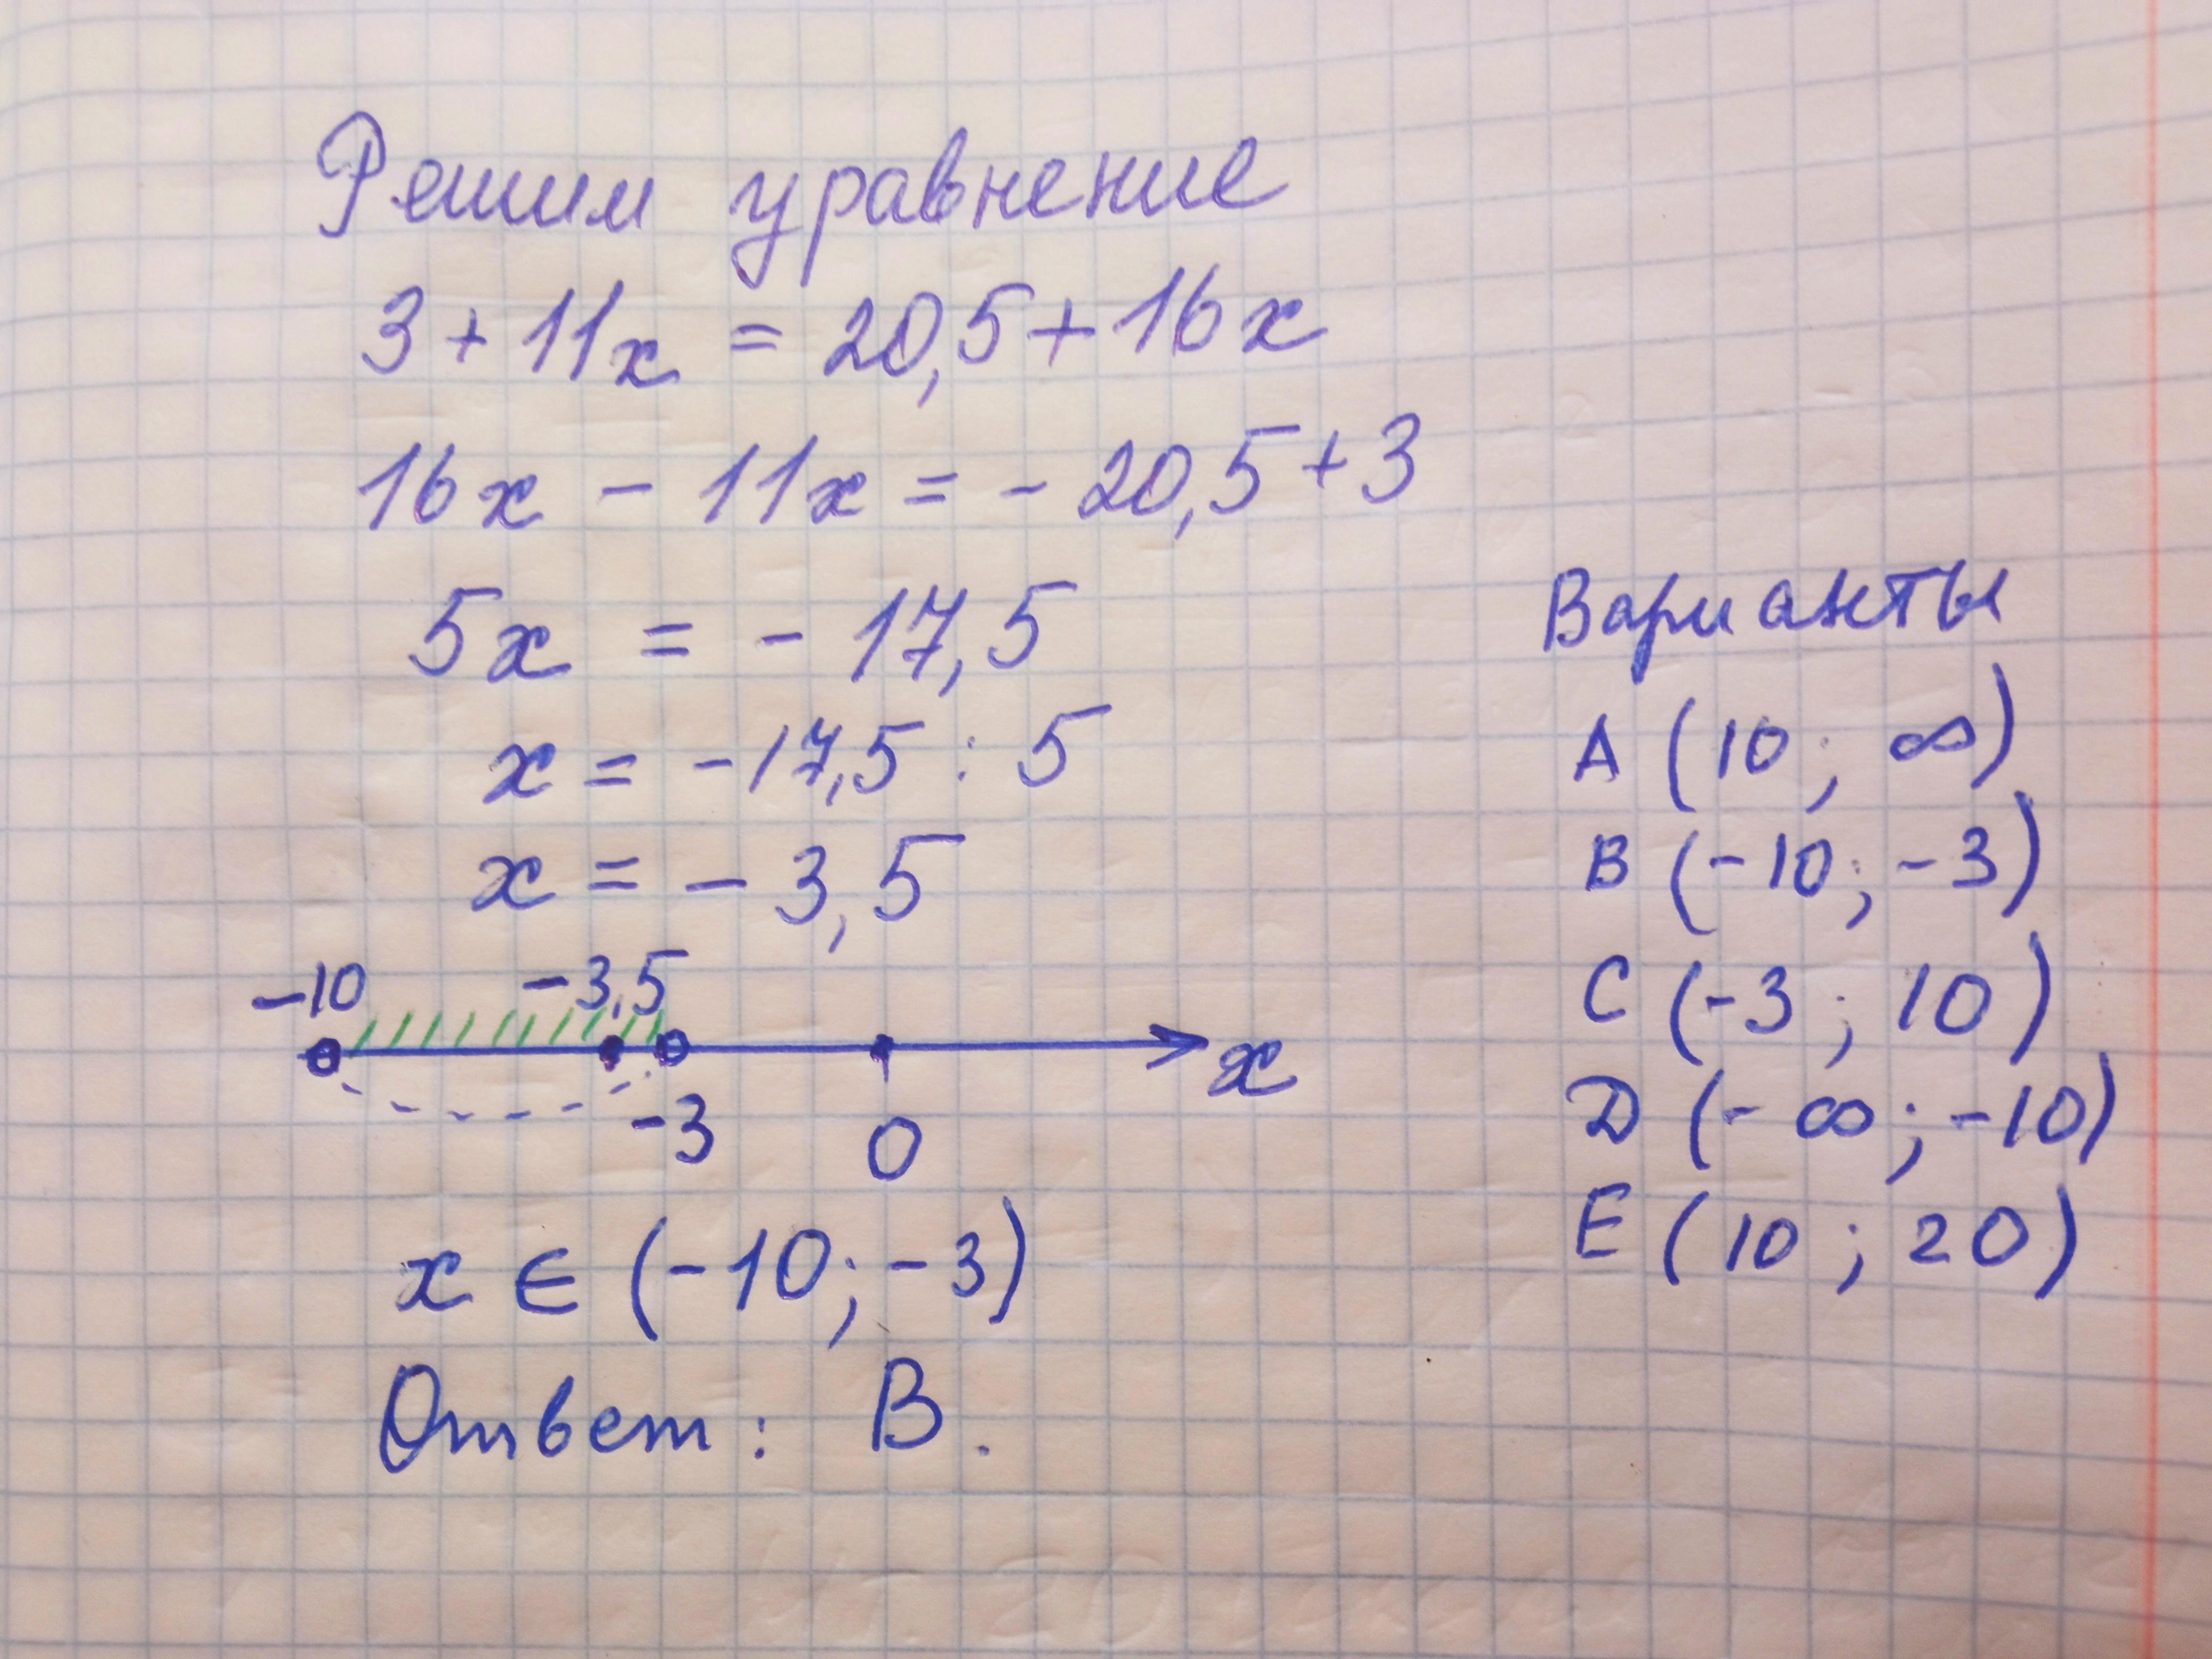 Решим уравнение
3 + 11x = 20,5 + 16x
16x - 11x = - 20,5 + 3
5x = - 17,5
x = -17,5 : 5
x = - 3,5
-10 -3,5
-3 0 x
x ∈ (-10; -3)
Ответ: В.
Варианты
A (10; ∞)
B (-10; -3)
C (-3; 10)
D (-∞; -10)
E (10; 20)